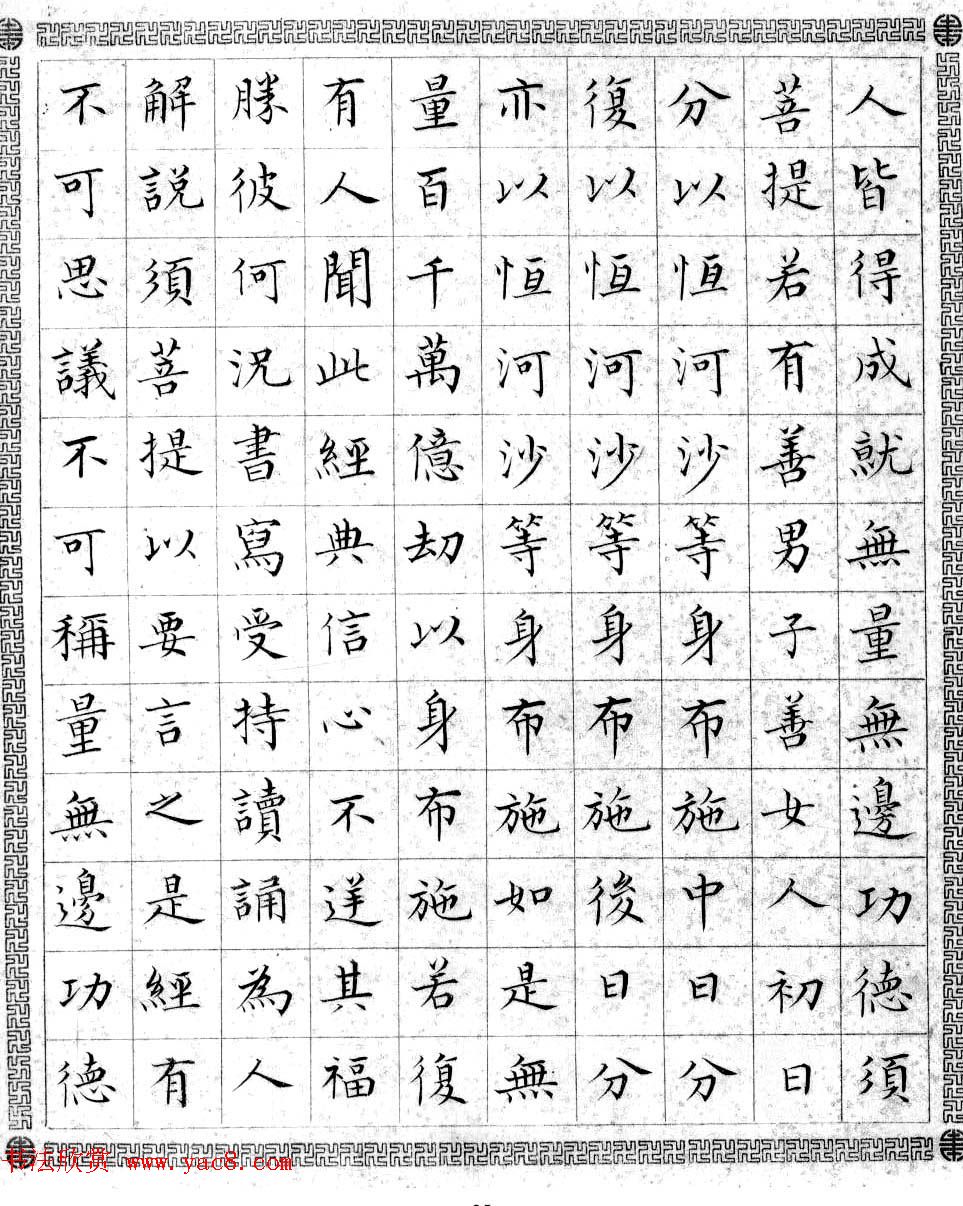 人皆得成就無量無邊功德須
菩提若有善男子善女人初日
分以恒河沙等身布施中日分
復以恒河沙等身布施後日分
亦以恒河沙等身布施如是無
量百千萬億劫以身布施若復
有人聞此經典信心不逆其福
勝彼何況書寫受持讀誦為人
解說須菩提以要言之是經有
不可思議不可稱量無邊功德
书法欣赏 www.yac8.com